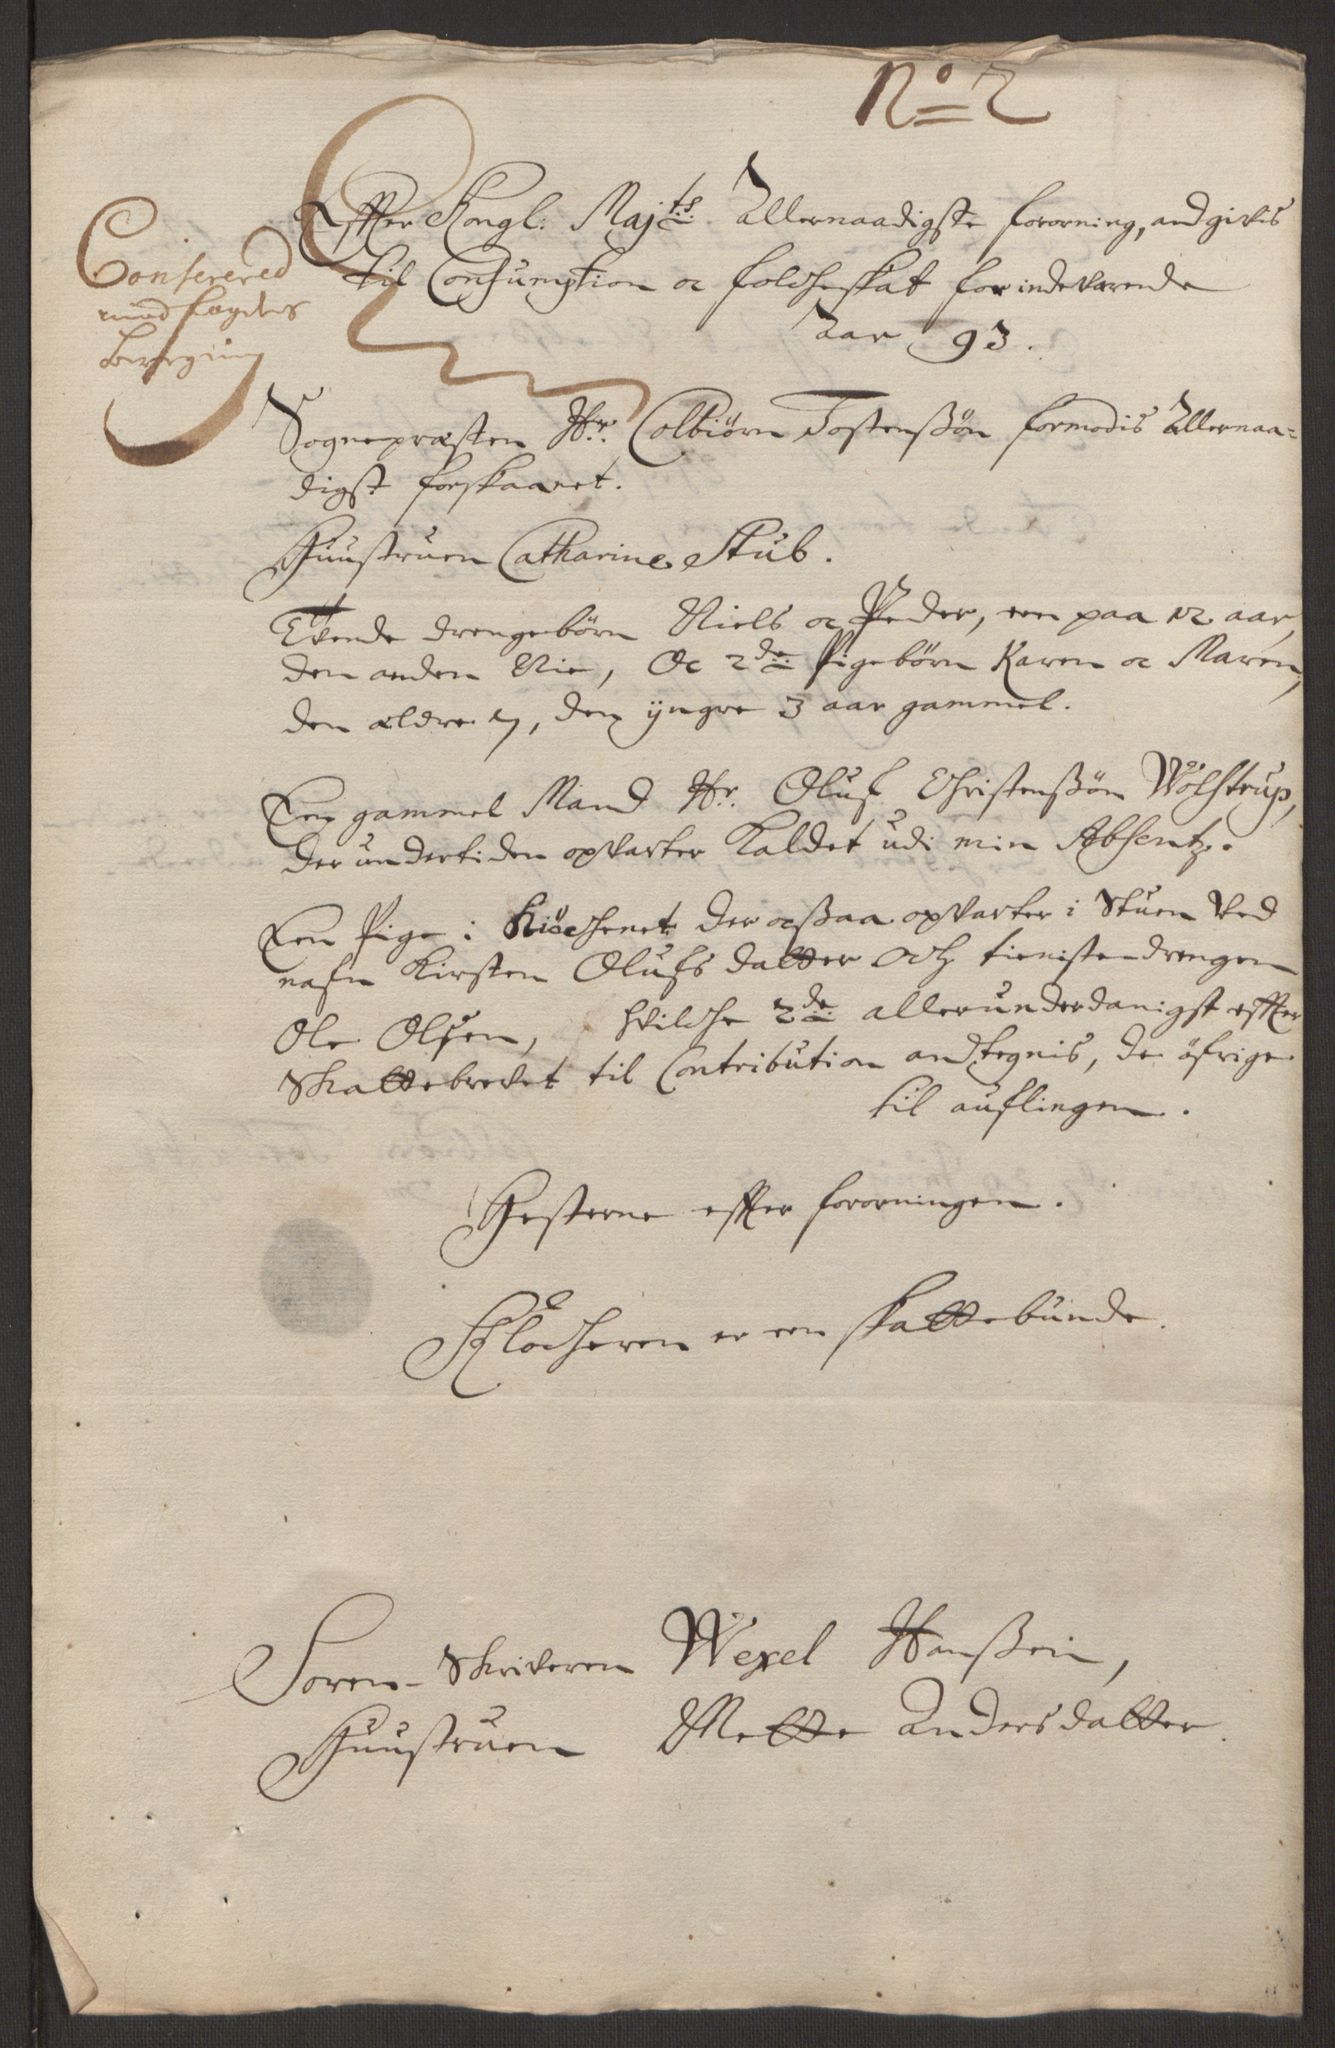 No 2
Conferered
med fogdens
Efter Kongl: Majts. Allernaadigste fororning, andgivis
til Consumption oc folcheskat for indeværende
Aar 93.
Sognepræsten Hr. Colbiörn Tostensßön formodis Allernaa=
digst forskaanet.
Huustruen Catharine Stub.
Tvende drengebörn Niels oc Peder, een paa 12 aar,
den anden Nie, Oc 2de Pigebörn Karen oc Maren,
den ældre 7, den yngre 3 aar gammel.
Een gammel Mand Hr. Oluf Christensßön Wölstrup,
der undertiden opvarter Kaldet udi min Absentz.
Een Pige i Kiöchenet der ocßaa opvarter i Stuen Ved
nafn Kirsten Olufs datter Och tienistedrengen
Ole Olsen, hvilche 2de allerunderdanigst efter
Skattebrevet til Contribution andtegnis, de öfrige
til auflingen.
Hesterne efter forordningen.
Klocheren er een skattebunde.
Soren-Skriveren Wexel Hansßön,
Huustruen Mette Andersdatter.